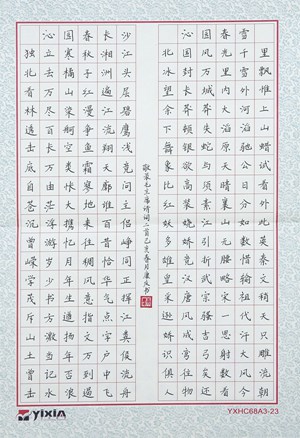 沁园春长沙
独立寒秋湘江
北去橘子洲头
看万山红遍层
林尽染漫江碧
透百舸争流鹰
击长空鱼翔浅
底万类霜天竞
自由怅寥廓问
苍茫大地谁主
沉浮携来百侣
曾游忆往昔峥
嵘岁月稠恰同
学少年风华正
茂书生意气挥
斥方遒指点江
山激扬文字粪
土当年万户侯
曾记否到中流
击水浪遏飞舟
敬录毛主席诗词二首己亥春月康庆书
沁园春雪
北国风光千里
冰封万里雪飘
望长城内外惟
余莽莽大河上
下顿失滔滔山
舞银蛇原驰蜡
象欲与天公试
比高须晴日看
红装素裹分外
妖娆江山如此
多娇引无数英
雄竞折腰惜秦
皇汉武略输文
采唐宗宋祖稍
逊风骚一代天
骄成吉思汗只
识弯弓射大雕
俱往矣数风流
人物还看今朝
YIXIN
YXHC68A3-23